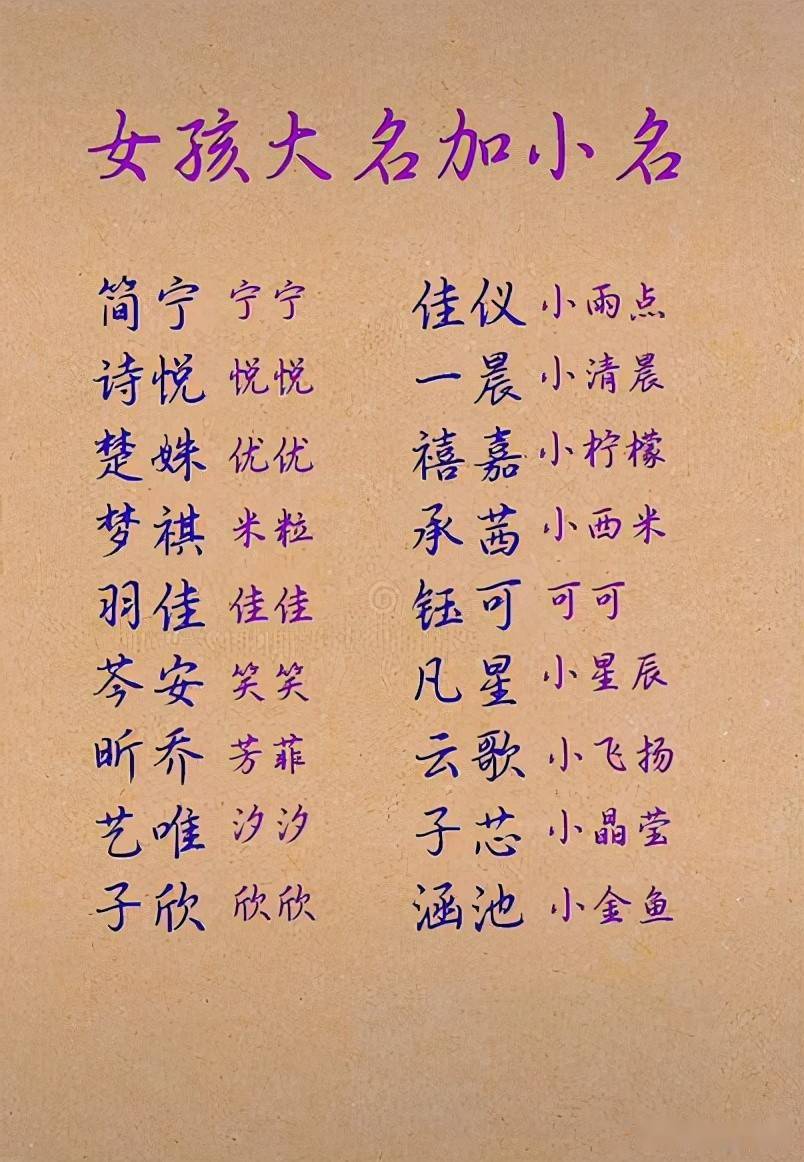 女孩大名加小名
简宁 宁宁 佳仪 小雨点
诗悦 悦悦 一晨 小清晨
楚姝 优优 禧嘉 小柠檬
梦祺 米粒 承茜 小西米
羽佳 佳佳 钰可 可可
芩安 笑笑 凡星 小星辰
昕乔 芳菲 云歌 小飞扬
艺唯 汐汐 子芯 小晶莹
子欣 欣欣 涵池 小金鱼